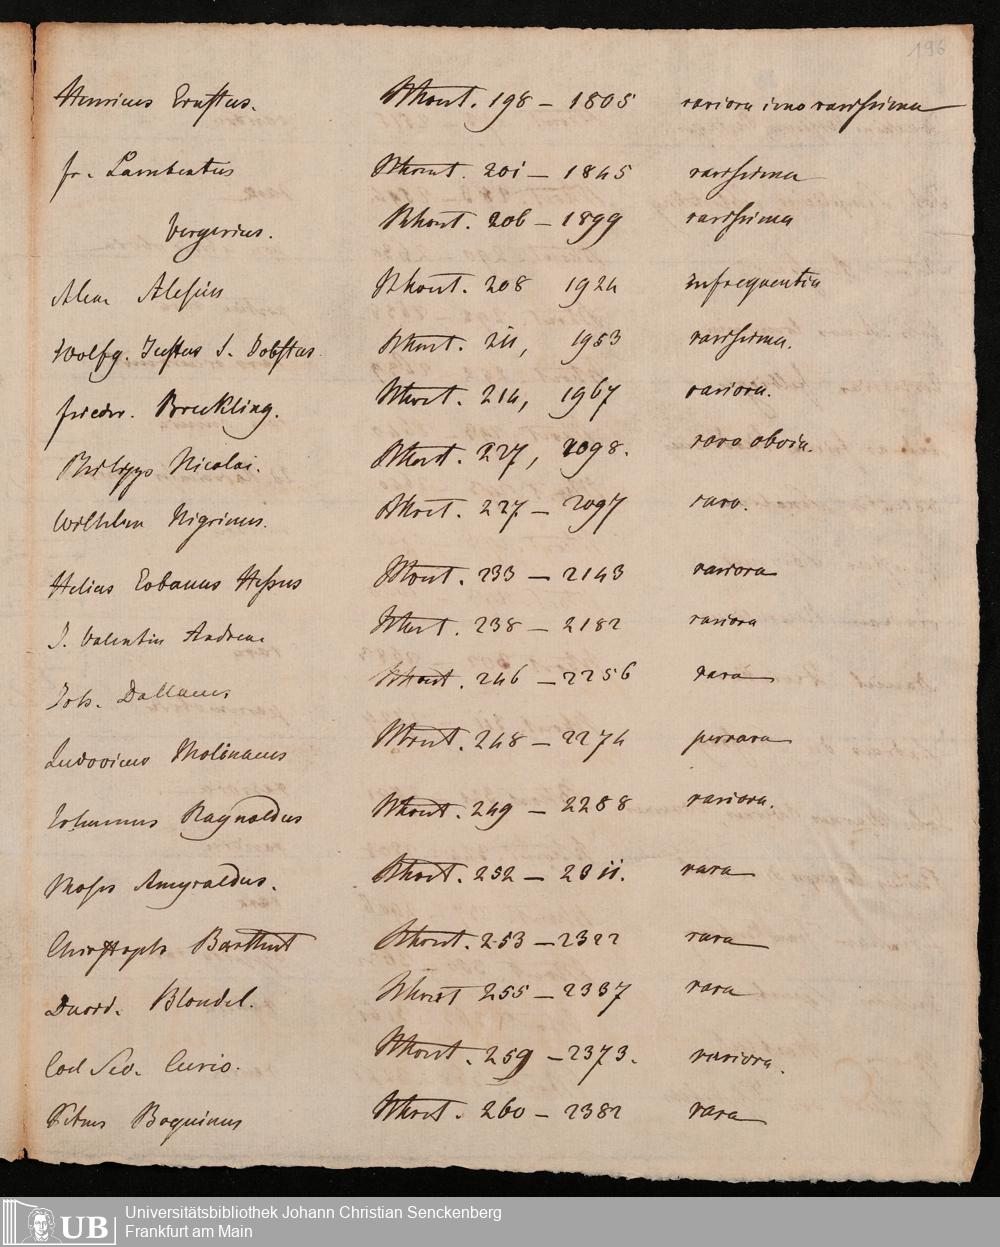 196
Henricus Ernstus. Thont. 198 – 1805 rariora imo rarissima
fr. Lambertus Thont. 201 – 1845 rarissima
Vergerius. Thont. 206 – 1899 rarissima
Alex Alesius Thont. 208 1924 infrequentia
Wolfg. Justus s. Jobstus Thont. 211, 1953 rarissima.
friedr. Breckling. Thont. 214, 1967 rariora.
Philipps Nicolai. Thont. 227, 2098. rara obvia.
Wilhelm Nigrinus. Thont. 227 – 2097 rara.
Helius Eobanus Hessus Thont. 233 – 2143 rariora
J. Valentin Andreae Thont. 238 – 2182 rariora
Joh. Dallaeus Thont. 246 – 2256 rara
Ludovicus Molinaeus Thont. 248 – 2274 perrara
Johannes Raynoldus Thont. 249 – 2288 rariora.
Moses Amyraldus. Thont. 252 – 2311. rara
Christoph Barthut Thont. 253 – 2322 rara
David. Blondel. Thont 255 – 2337 rara
Coel Sec. Curio. Thont. 259 – 2373. rariora.
Petrus Boquinus Thont. 260 – 2382 rara
UB
Universitätsbibliothek Johann Christian Senckenberg
Frankfurt am Main